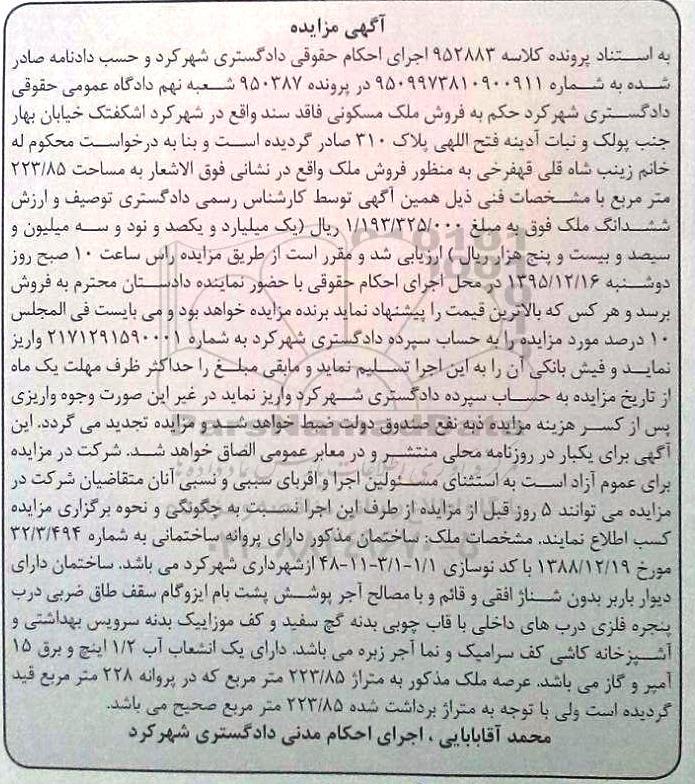 آگهی مزایده
به استناد پرونده کلاسه ۹۵۲۸۸۳ اجرای احکام حقوقی دادگستری شهرکرد و حسب دادنامه صادر
شده به شماره ۹۵۰۹۹۷۳۸۱۰۹۰۰۹۱۱ در پرونده ۹۵۰۳۸۷ شعبه نهم دادگاه عمومی حقوقی
دادگستری شهرکرد حکم به فروش ملک مسکونی فاقد سند واقع در شهرکرد اشکفتک خیابان بهار
جنب پولک و نبات آدینه فتح اللهی پلاک ۳۱۰ صادر گردیده است و بنا به درخواست محکوم له
خانم زینب شاه قلی قهفرخی به منظور فروش ملک واقع در نشانی فوق الاشعار به مساحت ۲۲۳/۸۵
متر مربع با مشخصات فنی ذیل همین آگهی توسط کارشناس رسمی دادگستری توصیف و ارزش
ششدانگ ملک فوق به مبلغ ۱/۱۹۳/۳۲۵/۰۰۰ ریال (یک میلیارد و یکصد و نود و سه میلیون و
سیصد و بیست و پنج هزار ریال) ارزیابی شد و مقرر است از طریق مزایده راس ساعت ۱۰ صبح روز
دوشنبه ۱۳۹۵/۱۲/۱۶ در محل اجرای احکام حقوقی با حضور نماینده دادستان محترم به فروش
برسد و هر کس که بالاترین قیمت را پیشنهاد نماید برنده مزایده خواهد بود و می بایست فی المجلس
۱۰ درصد مورد مزایده را به حساب سپرده دادگستری شهرکرد به شماره ۲۱۷۱۲۹۱۵۹۰۰۰۱ واریز
نماید و فیش بانکی آن را به این اجرا تسلیم نماید و مابقی مبلغ را حداکثر ظرف مهلت یک ماه
از تاریخ مزایده به حساب سپرده دادگستری شهرکرد واریز نماید در غیر این صورت وجوه واریزی
پس از کسر هزینه مزایده ذبه نفع صندوق دولت ضبط خواهد شد و مزایده تجدید می گردد. این
آگهی برای یکبار در روزنامه محلی منتشر و در معابر عمومی الصاق خواهد شد. شرکت در مزایده
برای عموم آزاد است به استثنای مسئولین اجرا و اقربای سببی و نسبی آنان متقاضیان شرکت در
مزایده می توانند ۵ روز قبل از مزایده از طرف این اجرا نسبت به چگونگی و نحوه برگزاری مزایده
کسب اطلاع نمایند. مشخصات ملک: ساختمان مذکور دارای پروانه ساختمانی به شماره ۳۲/۳/۴۹۴
مورخ ۱۳۸۸/۱۲/۱۹ با کد نوسازی ۱/۱-۳/۱-۱۱-۴۸ ازشهرداری شهرکرد می باشد. ساختمان دارای
دیوار باربر بدون شناژ افقی و قائم و با مصالح آجر پوشش پشت بام ایزوگام سقف طاق ضربی درب
پنجره فلزی درب های داخلی با قاب چوبی بدنه گچ سفید و کف موزاییک بدنه سرویس بهداشتی و
آشپزخانه کاشی کف سرامیک و نما آجر زبره می باشد. دارای یک انشعاب آب ۱/۲ اینچ و برق ۱۵
آمپر و گاز می باشد. عرصه ملک مذکور به متراژ ۲۲۳/۸۵ متر مربع که در پروانه ۲۲۸ متر مربع قید
گردیده است ولی با توجه به متراژ برداشت شده ۲۲۳/۸۵ متر مربع صحیح می باشد.
محمد آقابابایی ، اجرای احکام مدنی دادگستری شهرکرد